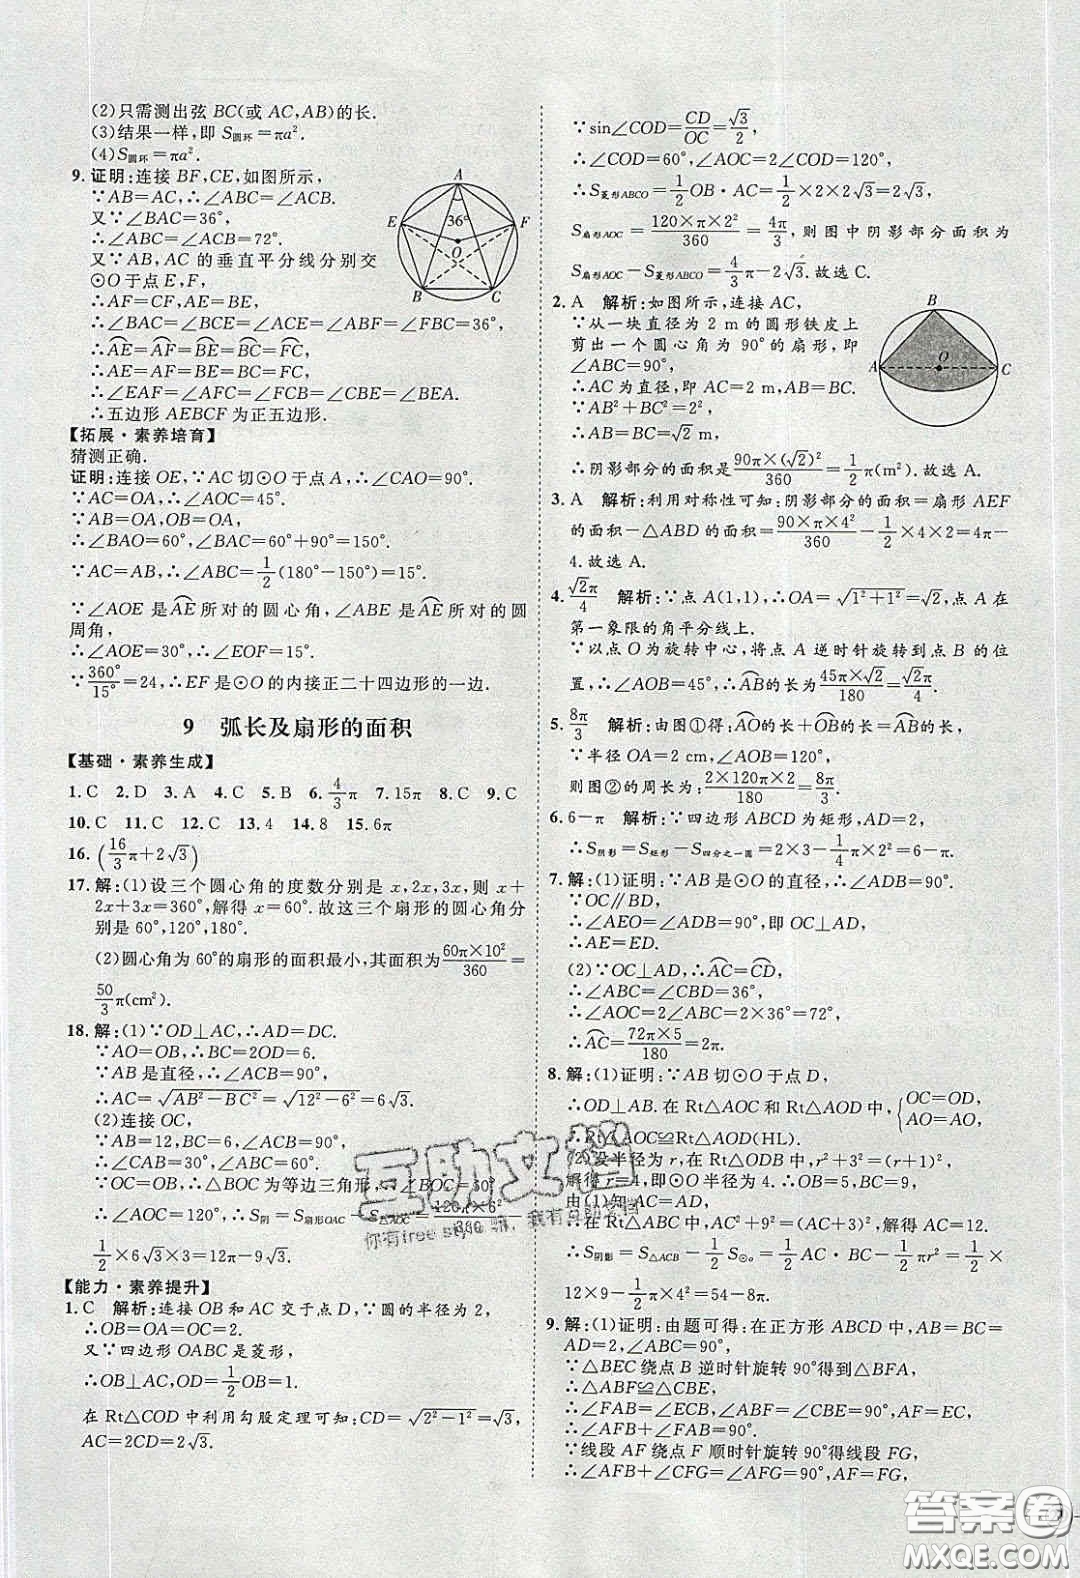 (2)只需测出弦 BC(或 AC,AB)的长.
(3)结果一样,即 S圆环=πa².
(4)S圆环=πa².
9.证明:连接 BF,CE,如图所示,
∵AB=AC,∴∠ABC=∠ACB.
又∵∠BAC=36°,
∴∠ABC=∠ACB=72°.
又∵AB,AC 的垂直平分线分别交
⊙O 于点 E,F,
∴AF=CF,AE=BE,
∴∠BAC=∠BCE=∠ACE=∠ABF=∠FBC=36°,
∴⌒AE=⌒AF=⌒BE=⌒BC=⌒FC,
∴AE=AF=BE=BC=FC,
∴∠EAF=∠AFC=∠FCB=∠CBE=∠BEA.
∴五边形 AEBCF 为正五边形.
A
36°
E
F
O
B
C
【拓展·素养培育】
猜测正确.
证明:连接 OE,∵AC 切⊙O 于点 A,∴∠CAO=90°.
∵AC=OA,∴∠AOC=45°.
∵AB=OA,OB=OA,
∴∠BAO=60°,∴∠BAC=60°+90°=150°.
∵AC=AB,∴∠ABC=1/2(180°-150°)=15°.
∵∠AOE 是⌒AE所对的圆心角,∠ABE 是⌒AE所对的圆
周角,
∴∠AOE=30°,∴∠EOF=15°.
∵360°/15°=24,∴EF 是⊙O 的内接正二十四边形的一边.
9 弧长及扇形的面积
【基础·素养生成】
1.C 2.D 3.A 4.C 5.B 6.4/3π 7.15π 8.C 9.C
10.C 11.C 12.C 13.4 14.8 15.6π
16.(16/3π+2√3)
17.解:(1)设三个圆心角的度数分别是 x,2x,3x,则 x+
2x+3x=360°,解得 x=60°.故这三个扇形的圆心角分
别是 60°,120°,180°.
(2)圆心角为 60°的扇形的面积最小,其面积为60π×10²/360=
50/3π(cm²).
18.解:(1)∵OD⊥AC,∴AD=DC.
∵AO=OB,∴BC=2OD=6.
∵AB 是直径,∴∠ACB=90°,
∴AC=√(AB²-BC²)=√(12²-6²)=6√3.
(2)连接 OC,
∵AB=12,BC=6,∠ACB=90°,
∴∠CAB=30°,∴∠ABC=60°,
∵OC=OB,∴△BOC 为等边三角形,∴∠BOC=60°
∴∠AOC=120°,∴S阴=S扇形OAC-S△AOC=120π×6²/360-
1/2×6√3×3=12π-9√3.
【能力·素养提升】
1.C 解析:连接 OB 和 AC 交于点 D,∵圆的半径为 2,
∴OB=OA=OC=2.
又∵四边形 OABC 是菱形,
∴OB⊥AC,OD=1/2OB=1.
在 Rt△COD 中利用勾股定理可知:CD=√(2²-1²)=√3,
AC=2CD=2√3.
∵sin∠COD=CD/OC=√3/2,
∴∠COD=60°,∠AOC=2∠COD=120°,
∴S菱形ABCO=1/2OB·AC=1/2×2×2√3=2√3,
S扇形AOC=120×π×2²/360=4π/3,则图中阴影部分面积为
S扇形AOC-S菱形ABCO=4/3π-2√3.故选 C.
2.A 解析:如图所示,连接 AC,
∵从一块直径为 2 m 的圆形铁皮上
剪出一个圆心角为 90°的扇形,即
∠ABC=90°,
∴AC 为直径,即 AC=2 m,AB=BC.
∵AB²+BC²=2²,
∴AB=BC=√2 m,
∴阴影部分的面积是90π×(√2)²/360=1/2π(m²).故选 A.
B
O
A
C
3.A 解析:利用对称性可知:阴影部分的面积=扇形 AEF
的面积-△ABD 的面积=90×π×4²/360-1/2×4×4=4π-
4.故选 A.
4.√2π/4 解析:∵点 A(1,1),∴OA=√(1²+1²)=√2,点 A 在
第一象限的角平分线上.
∵以点 O 为旋转中心,将点 A 逆时针旋转到点 B 的位
置,∴∠AOB=45°,∴⌒AB的长为45π×√2/180=√2π/4.
5.8π/3 解析:由图①得:⌒AO的长+⌒OB的长=⌒AB的长,
∵半径 OA=2 cm,∠AOB=120°,
则图②的周长为2×120π×2/180=8π/3.
6.6-π 解析:∵四边形 ABCD 为矩形,AD=2,
∴S阴影=S矩形-S四分之一圆=2×3-1/4π×2²=6-π.
7.解:(1)证明:∵AB 是⊙O 的直径,∴∠ADB=90°.
∵OC∥BD,
∴∠AEO=∠ADB=90°,即 OC⊥AD,
∴AE=ED.
(2)∵OC⊥AD,∴⌒AC=⌒CD,
∴∠ABC=∠CBD=36°,
∴∠AOC=2∠ABC=2×36°=72°,
∴⌒AC=72π×5/180=2π.
8.解:(1)证明:∵AB 切⊙O 于点 D,
∴OD⊥AB.在 Rt△AOC 和 Rt△AOD 中,{OC=OD, AO=AO,
∴Rt△AOC≌Rt△AOD(HL).
(2)设半径为 r,在 Rt△ODB 中,r²+3²=(r+1)²,
解得 r=4,即⊙O 的半径为 4.∴OB=5,BC=9,
由(1)知 AC=AD,
∴在 Rt△ABC 中,AC²+9²=(AC+3)²,解得 AC=12.
∴S阴影=S△ACB-1/2S⊙O=1/2AC·BC-1/2πr²=1/2×
12×9-1/2π×4²=54-8π.
9.解:(1)证明:由题可得:在正方形 ABCD 中,
∵△BEC 绕点 B 逆时针旋转 90°得到△BFA,
∴△ABF≌△CBE,
∴∠FAB=∠ECB,∠ABF=∠CBE=90°,AF=EC,
∴∠AFB+∠FAB=90°.
∵线段 AF 绕点 F 顺时针旋转 90°得线段 FG,
∴∠AFB+∠CFG=∠AFG=90°,AF=FG,
互助文档
你有free style嘛,我有互助文档
答案圈
MXQE.COM